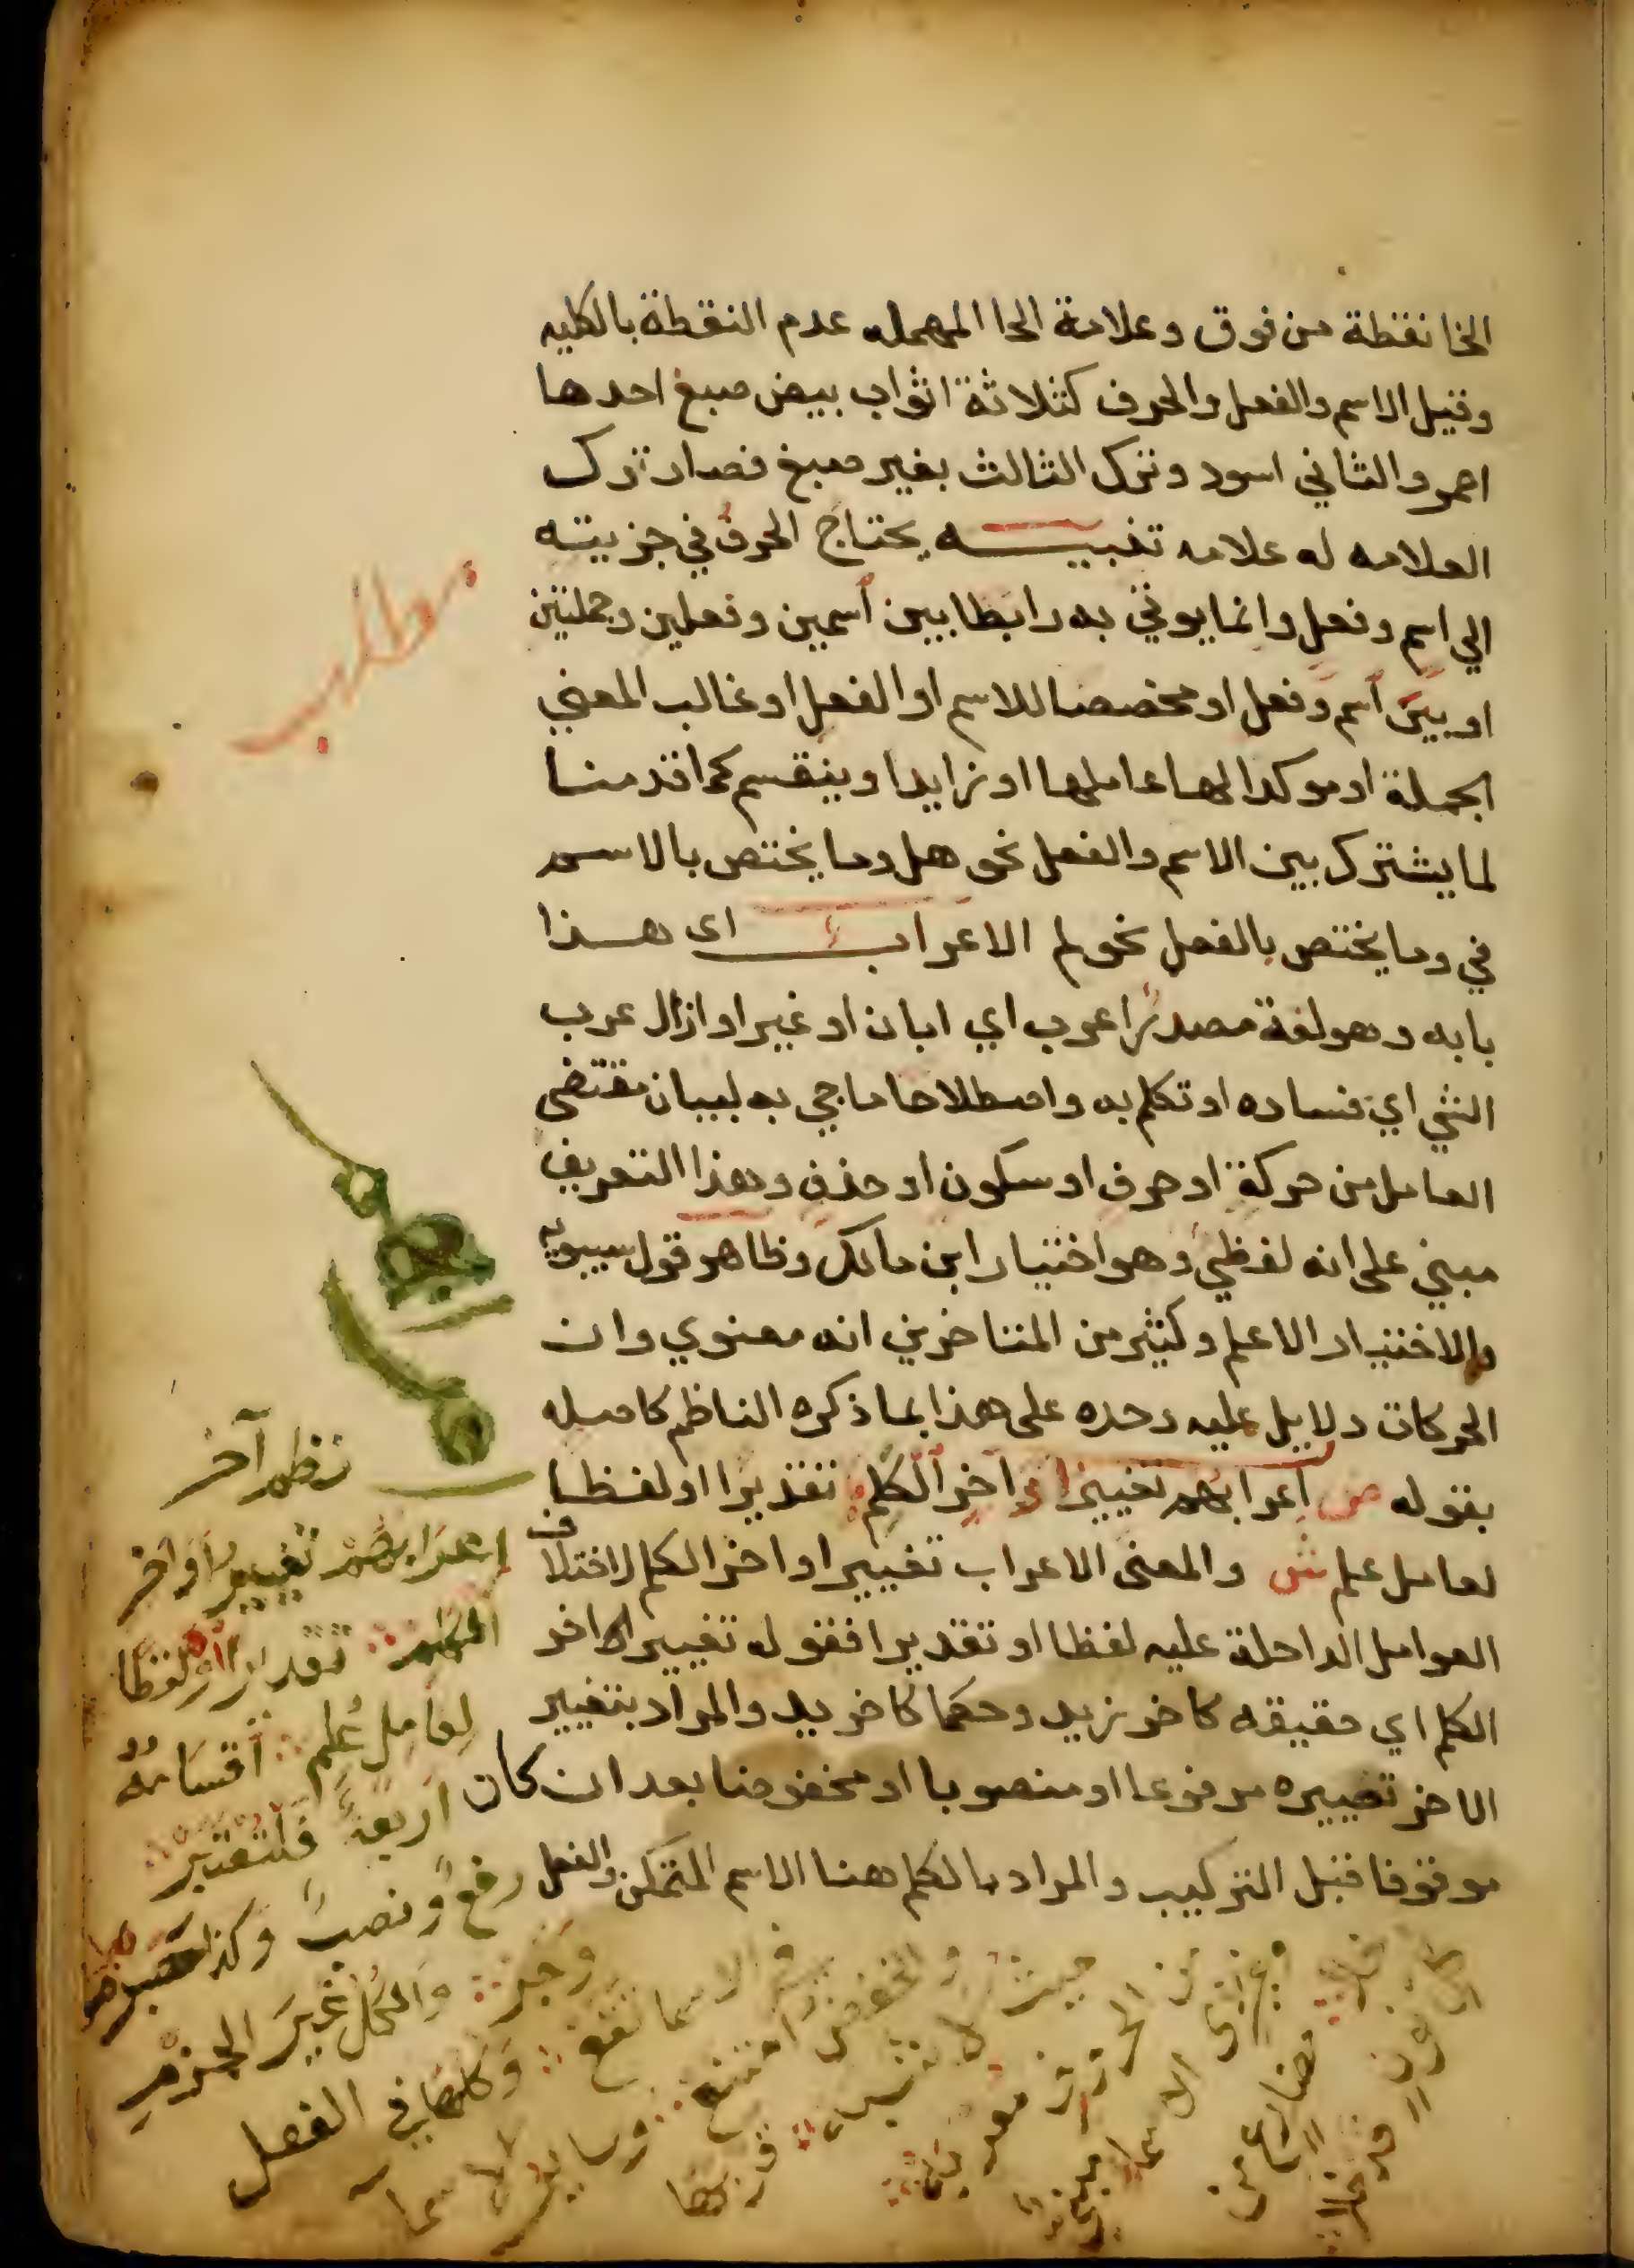 الخا نقطة من فوق وعلامة الحا المهمله عدم النقطة بالكليه
وقيل الاسم والفعل والحرف كثلاثة اثواب بيض صبغ احدها
احمر والثاني اسود وترك الثالث بغير صبغ فصار ترك
العلامه له علامه تنبيه يحتاج الحرف في جزييته
الي اسم وفعل وانما يوتي به رابطا بين اسمين وفعلين وجملتين
او بين اسم وفعل او مخصصا للاسم او الفعل او غالب المعني
الجملة او موكدا لها عاملها او زايدا وينقسم كما قدمنا
لما يشترك بين الاسم والفعل نحو هل وما يختص بالاسم
في وما يختص بالفعل نحو لم الاعراب اى هذا
بابه وهو لغة مصدر اعرب اي ابان او غير او ازال عرب
الشي اي فساده او تكلم به واصطلاحا ما جي به لبيان مقتضى
العامل من حركة او حرف او سكون او حذف وهذا التعريف
مبني على انه لفظي وهو اختيار ابن مالك وظاهر قول سيبويه
والاختيار الاعلم وكثير من المتاخرين انه معنوي وان
الحركات دلايل عليه وحده على هذا بما ذكره الناظم كاصله
بقوله ص اعرابهم تغيير اواخر الكلم تقديرا او لفظا
لعامل علم ش والمعنى الاعراب تغيير اواخر الكلم لاختلاف
العوامل الداخلة عليه لفظا او تقديرا فقوله تغيير اواخر
الكلم اي حقيقه كاخر زيد وحكما كاخر يد والمراد بتغيير
الاخر تصييره مرفوعا او منصوبا او مخفوضا بعد ان كان
موقوفا قبل التركيب والمراد بالكلم هنا الاسم المتمكن والفعل
مطلب
نظم آخر
اعرابهم تغيير اواخر
الكلم تقديرا او لفظا
لعامل علم اقسامه
اربعة فلتعتبر
رفع ونصب وكذا
جزم وجر والكل غير الجزم
في الاسما تقع وكلها في الفعل
والخفض امتنع وساير الاسما
حيث لا شبه قربها
من الحروف معربه
وغير ذي الاسما مبني
خلا مضارع من